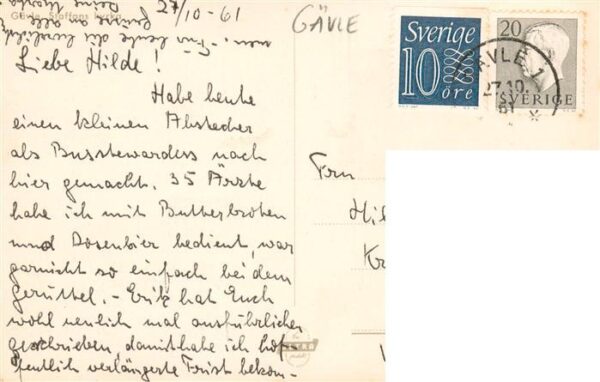 27/10-61
GÄVLE
Gävle. Staffans kyrka
Liebe Hilde!
Habe heute
einen kleinen Abstecher
als Busstewardess nach
hier gemacht. 35 Ärzte
habe ich mit Butterbroten
und Dosenbier bedient, war
garnicht so einfach bei dem
Gerüttel. - Erik hat Euch
wohl neulich mal ausführlicher
geschrieben, damit habe ich hof-
fentlich verlängerte Frist bekom-
Frau
Hil
Kr
Sverige
10
öre
20
SVERIGE
GÄVLE 1
27.10.
61